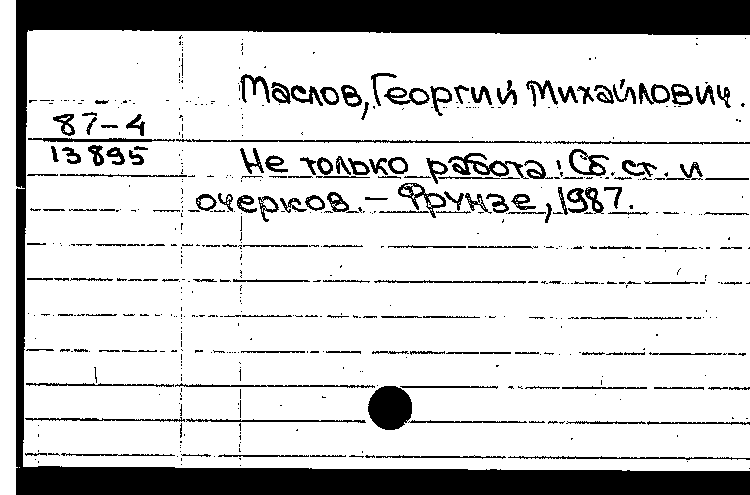 Маслов, Георгий Михайлович.
87-4
13895
Не только работа: Сб. ст. и
очерков. – Фрунзе, 1987.